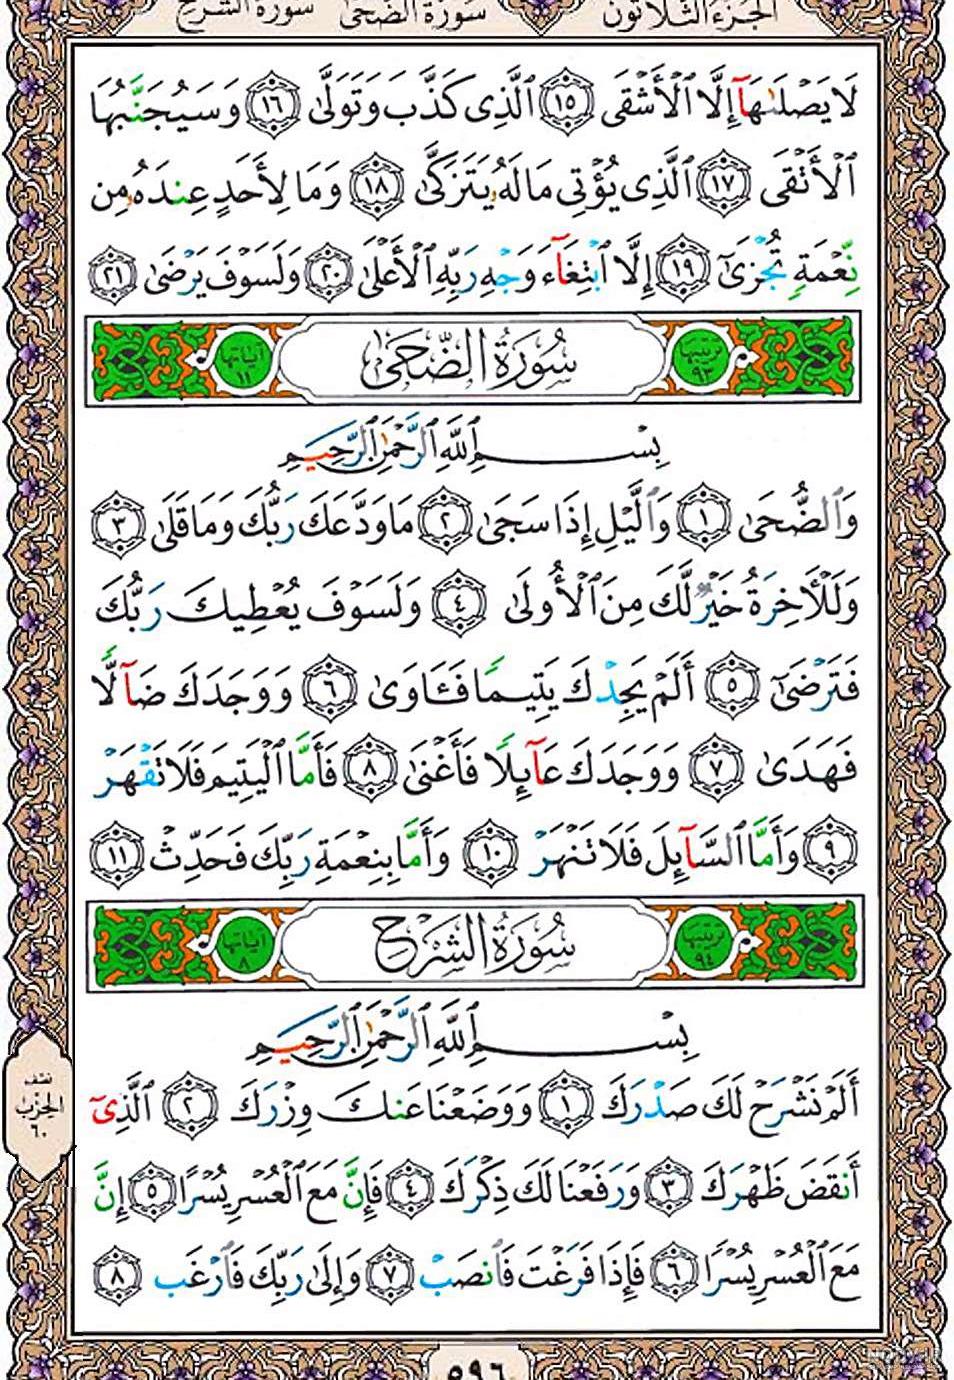 الجزء الثلاثون سورة الضحى سورة الشرح
لَا يَصْلَىٰهَآ إِلَّا ٱلْأَشْقَى ١٥ ٱلَّذِى كَذَّبَ وَتَوَلَّىٰ ١٦ وَسَيُجَنَّبُهَا
ٱلْأَتْقَى ١٧ ٱلَّذِى يُؤْتِى مَالَهُۥ يَتَزَكَّىٰ ١٨ وَمَا لِأَحَدٍ عِندَهُۥ مِن
نِّعْمَةٍ تُجْزَىٰٓ ١٩ إِلَّا ٱبْتِغَآءَ وَجْهِ رَبِّهِ ٱلْأَعْلَىٰ ٢٠ وَلَسَوْفَ يَرْضَىٰ ٢١
ترتيبها ٩٣ سُورَةُ الضُّحَىٰ آياتها ١١
بِسْمِ ٱللَّهِ ٱلرَّحْمَٰنِ ٱلرَّحِيمِ
وَٱلضُّحَىٰ ١ وَٱلَّيْلِ إِذَا سَجَىٰ ٢ مَا وَدَّعَكَ رَبُّكَ وَمَا قَلَىٰ ٣
وَلَلْءَاخِرَةُ خَيْرٌ لَّكَ مِنَ ٱلْأُولَىٰ ٤ وَلَسَوْفَ يُعْطِيكَ رَبُّكَ
فَتَرْضَىٰٓ ٥ أَلَمْ يَجِدْكَ يَتِيمًا فَـَٔاوَىٰ ٦ وَوَجَدَكَ ضَآلًّا
فَهَدَىٰ ٧ وَوَجَدَكَ عَآئِلًا فَأَغْنَىٰ ٨ فَأَمَّا ٱلْيَتِيمَ فَلَا تَقْهَرْ
٩ وَأَمَّا ٱلسَّآئِلَ فَلَا تَنْهَرْ ١٠ وَأَمَّا بِنِعْمَةِ رَبِّكَ فَحَدِّثْ ١١
ترتيبها ٩٤ سُورَةُ الشَّرْحِ آياتها ٨
بِسْمِ ٱللَّهِ ٱلرَّحْمَٰنِ ٱلرَّحِيمِ
أَلَمْ نَشْرَحْ لَكَ صَدْرَكَ ١ وَوَضَعْنَا عَنكَ وِزْرَكَ ٢ ٱلَّذِىٓ
أَنقَضَ ظَهْرَكَ ٣ وَرَفَعْنَا لَكَ ذِكْرَكَ ٤ فَإِنَّ مَعَ ٱلْعُسْرِ يُسْرًا ٥ إِنَّ
مَعَ ٱلْعُسْرِ يُسْرًا ٦ فَإِذَا فَرَغْتَ فَٱنصَبْ ٧ وَإِلَىٰ رَبِّكَ فَٱرْغَب ٨
نصف
الحزب
٦٠
٥٩٦